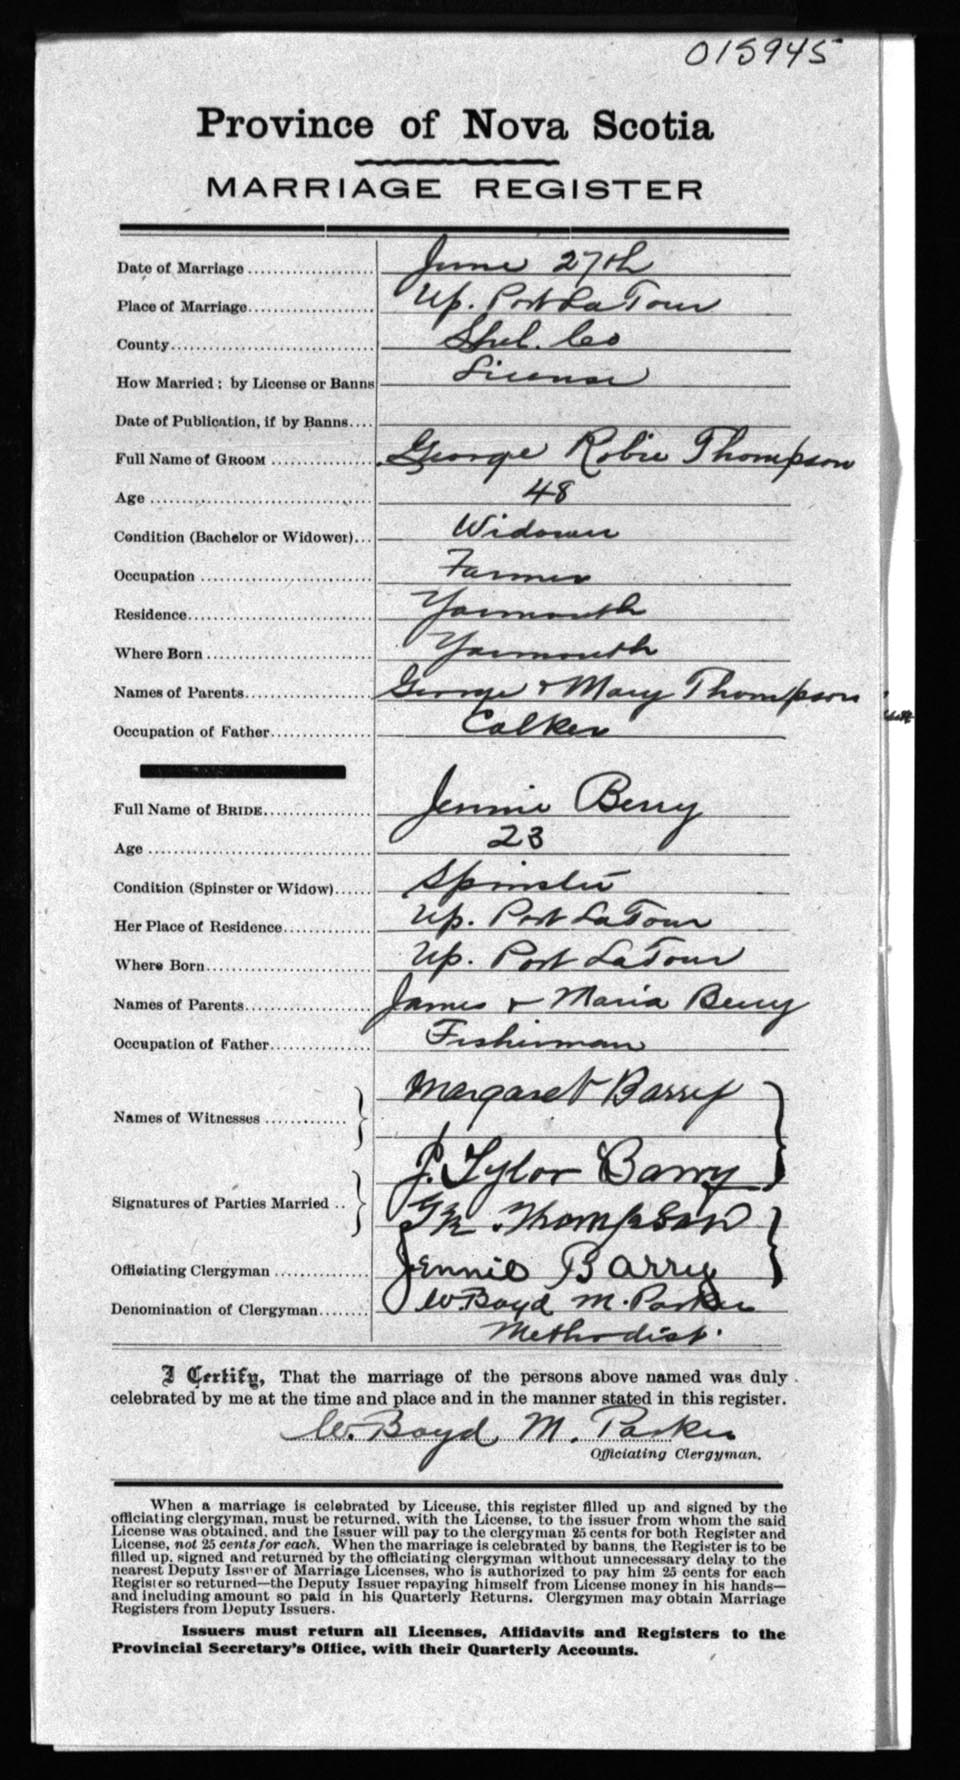 015945
Province of Nova Scotia
MARRIAGE REGISTER
Date of Marriage .................... June 27th
Place of Marriage.................... Up. Port LaTour
County.................... Shel. Co
How Married: by License or Banns License
Date of Publication, if by Banns....
Full Name of GROOM .................... George Robie Thompson
Age .................... 48
Condition (Bachelor or Widower)... Widower
Occupation .................... Farmer
Residence.................... Yarmouth
Where Born .................... Yarmouth
Names of Parents.................... George & Mary Thompson
Occupation of Father.................... Calker
Full Name of BRIDE.................... Jennie Berry
Age .................... 23
Condition (Spinster or Widow)...... Spinster
Her Place of Residence.............. Up. Port LaTour
Where Born.................... Up. Port LaTour
Names of Parents.................... James & Maria Berry
Occupation of Father.................... Fisherman
Names of Witnesses ............. Margaret Barry
J. Tylor Barry
Signatures of Parties Married .. GR Thompson
Jennie Barry
Officiating Clergyman .............. W. Boyd M. Parker
Denomination of Clergyman........ Methodist.
I Certify, That the marriage of the persons above named was duly
celebrated by me at the time and place and in the manner stated in this register.
W. Boyd M. Parker
Officiating Clergyman.
When a marriage is celebrated by License, this register filled up and signed by the
officiating clergyman, must be returned, with the License, to the issuer from whom the said
License was obtained, and the Issuer will pay to the clergyman 25 cents for both Register and
License, not 25 cents for each. When the marriage is celebrated by banns, the Register is to be
filled up, signed and returned by the officiating clergyman without unnecessary delay to the
nearest Deputy Issuer of Marriage Licenses, who is authorized to pay him 25 cents for each
Register so returned—the Deputy Issuer repaying himself from License money in his hands—
and including amount so paid in his Quarterly Returns. Clergymen may obtain Marriage
Registers from Deputy Issuers.
Issuers must return all Licenses, Affidavits and Registers to the
Provincial Secretary's Office, with their Quarterly Accounts.